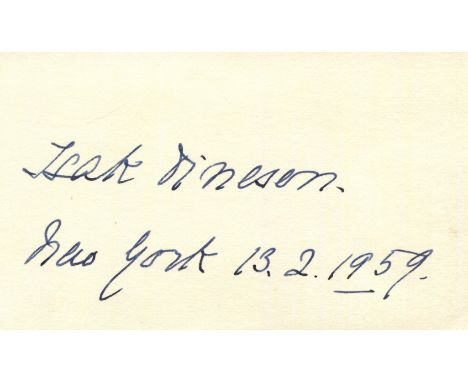 Isak Dinesen.
New York 13.2.1959.